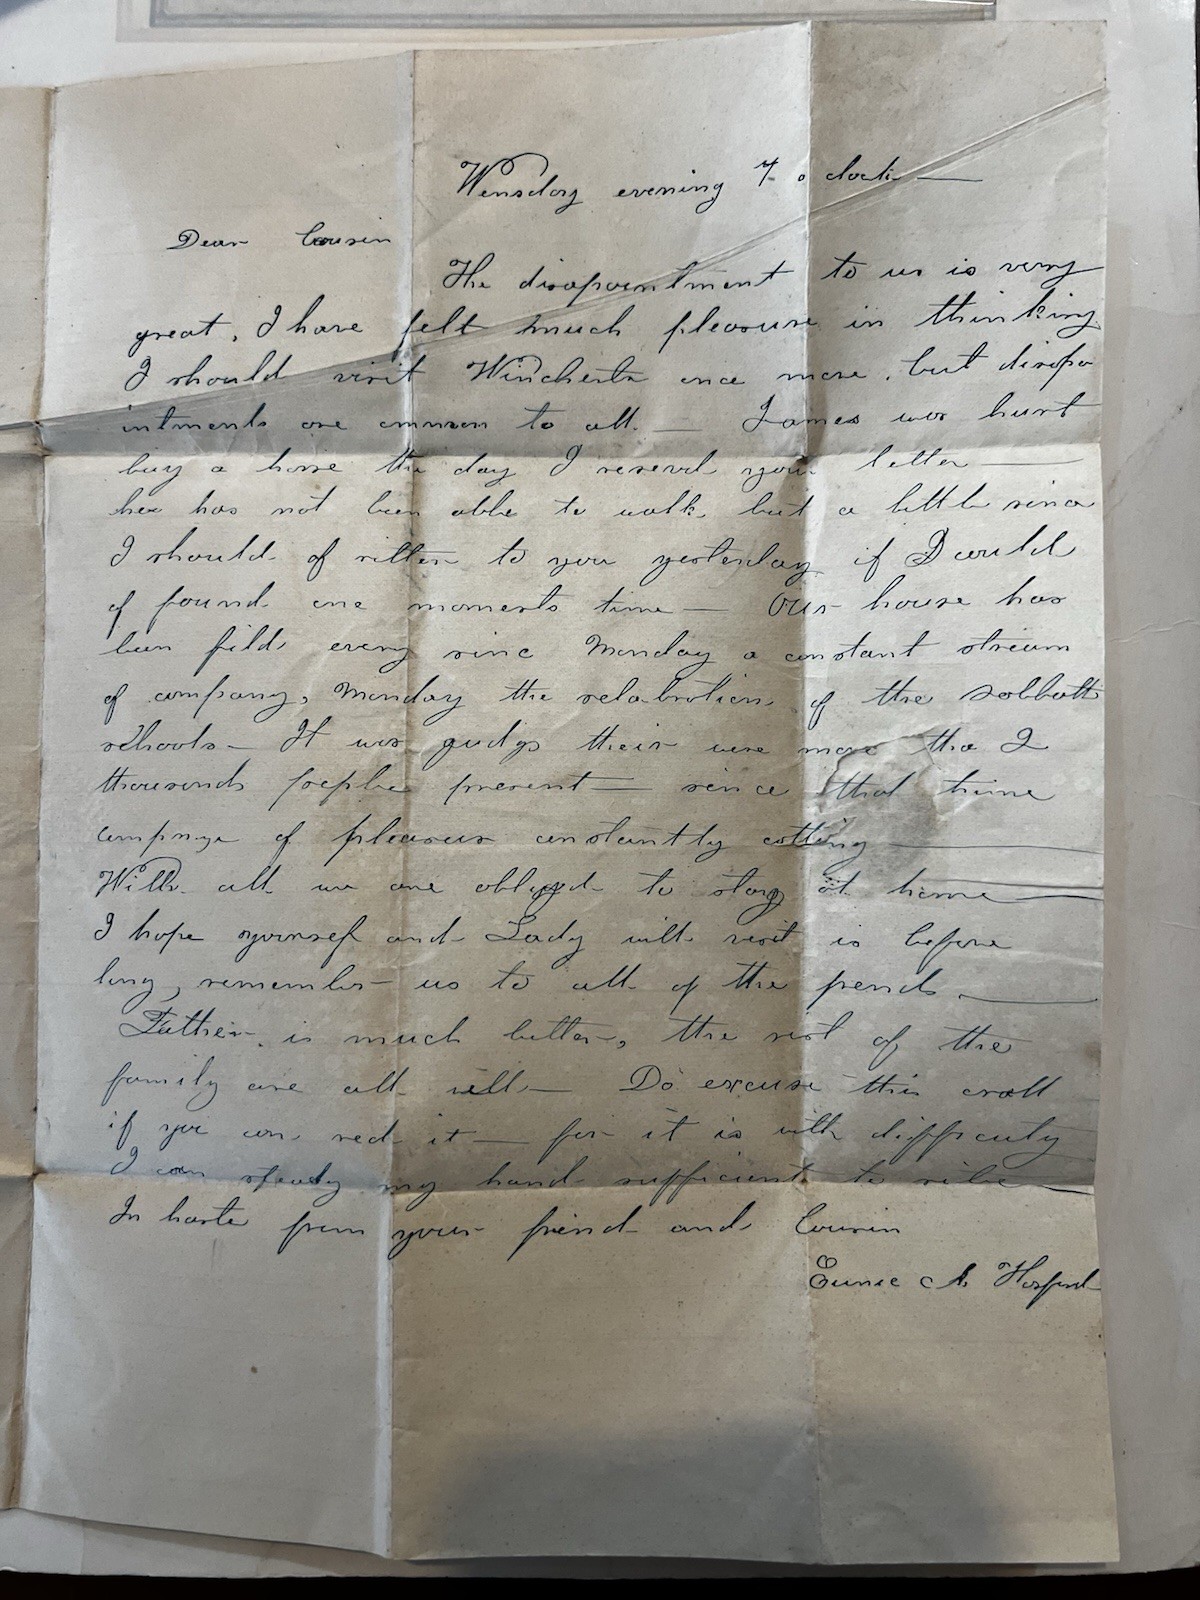 Wensday evening 7 o clock —
Dear Cousin
The disapointment to us is very
great, I have felt much pleasure in thinking
I should visit Winchester once more, but disapo
intments are common to all — James was hurt
buy a horse the day I reserved your letter —
hee has not been able to walk but a little since
I should of ritten to you yesterday if I could
of found one moments time — Our house has
been fild every since Monday a constant stream
of company, Monday the selabration of the sabbath
schools — It was gudgd their were more tha 2
thousands people present — since that time
of pleasure constantly calling —
Will all we are obleged to stay at home —
I hope yourself and Lady will visit is before
long, remember us to all of the friends —
Father is much better, the rest of the
family are all well — Do excuse this crall
if you can red it — for it is with difficuty
I can steady my hand sufficient to rite —
In haste from your friend and Cousin
Eunice A Hosford